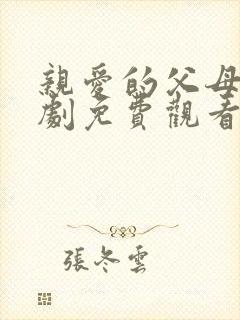 親愛的父母
劇免費觀看
張冬雲